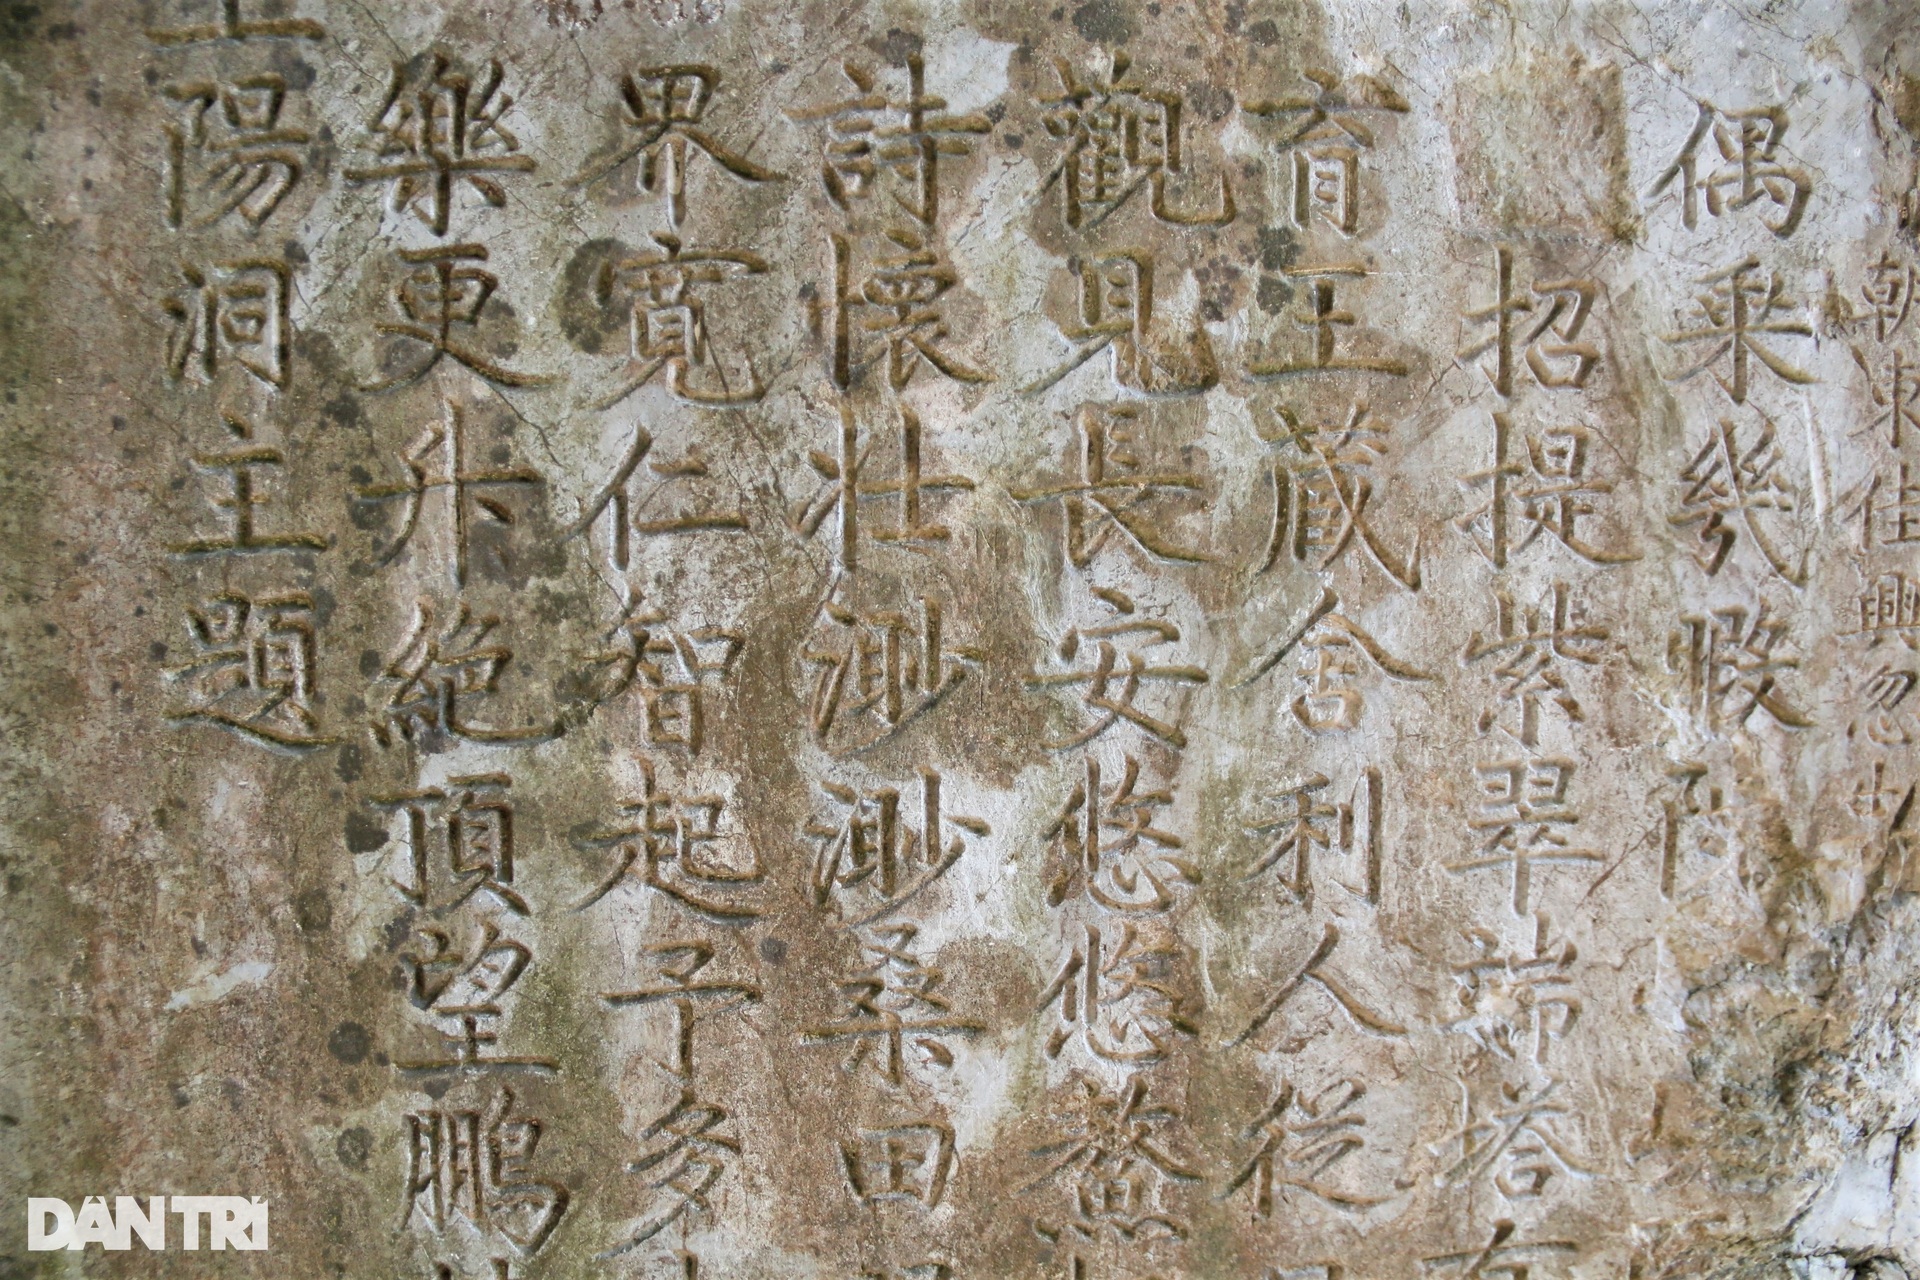 朝東佳興忽中
偶乘幾暇
招提紫翠端塔
育王藏舍利人從
觀見長安悠悠鰲
詩懷壯渺渺桑田
界寬仁智起予多
樂更升絕頂望鵬
陽洞主題
DÂN TRÍ